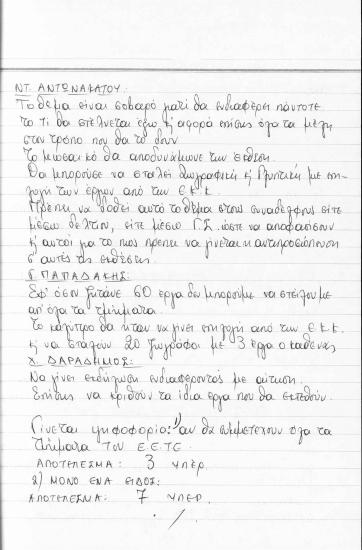 ΝΤ. ΑΝΤΩΝΑΚΑΤΟΥ:
Το θέμα είναι σοβαρό γιατί θα ενδιαφέρει πάντοτε
το τι θα στέλνεται έξω κ' αφορά επίσης όλα τα μέλη
στον τρόπο που θα το δουν.
Το μωσαικό θα αποδυνάμωνε την έκθεση.
Θα μπορούσε να σταλεί ζωγραφική κ' Γλυπτική με επι-
λογή των έργων από την Ε.Κ.Κ.
Πρέπει να δοθεί αυτό το θέμα στους συναδέλφους είτε
μέσω δελτίων, είτε μέσω Γ.Σ. ώστε να αποφασίσουν
κ' αυτοί για το πως πρέπει να γίνεται η αντιπροσώπευση
σ' αυτές τις εκθέσεις.
ΠΑΠΑΔΑΚΗΣ:
Εφ' όσον ζητάνε 60 έργα δεν μπορούμε να στείλουμε
απ' όλα τα τμήματα.
Το καλύτερο θα ήταν να γίνει επιλογή από την Ε.Κ.Κ
κ' να σταλούν 20 ζωγράφοι με 3 έργα ο καθένας
Χ. ΔΑΡΑΔΗΜΟΣ:
Να γίνει εκδήλωση ενδιαφέροντος με αίτηση.
Επίσης να κριθούν τα ίδια έργα που θα εκτεθούν.
Γίνεται ψηφοφορία: 1) αν θα συμμετέχουν όλα τα
Τμήματα του Ε.Ε.Τ.Ε.
ΑΠΟΤΕΛΕΣΜΑ: 3 ΥΠΕΡ.
2) ΜΟΝΟ ΕΝΑ ΕΙΔΟΣ:
ΑΠΟΤΕΛΕΣΜΑ: 7 ΥΠΕΡ.